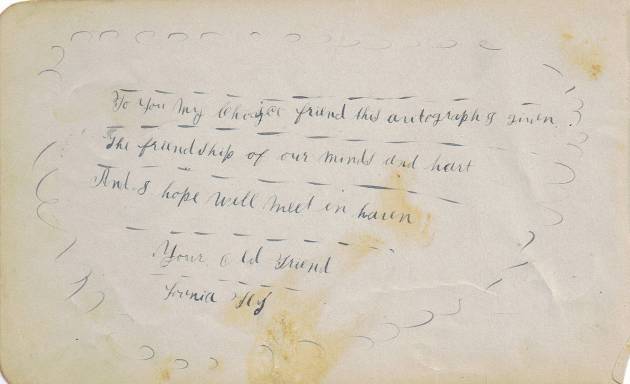 To you my Choice friend this autograph is given.
The friendship of our minds and hart
And I hope will meet in haven
Your old friend